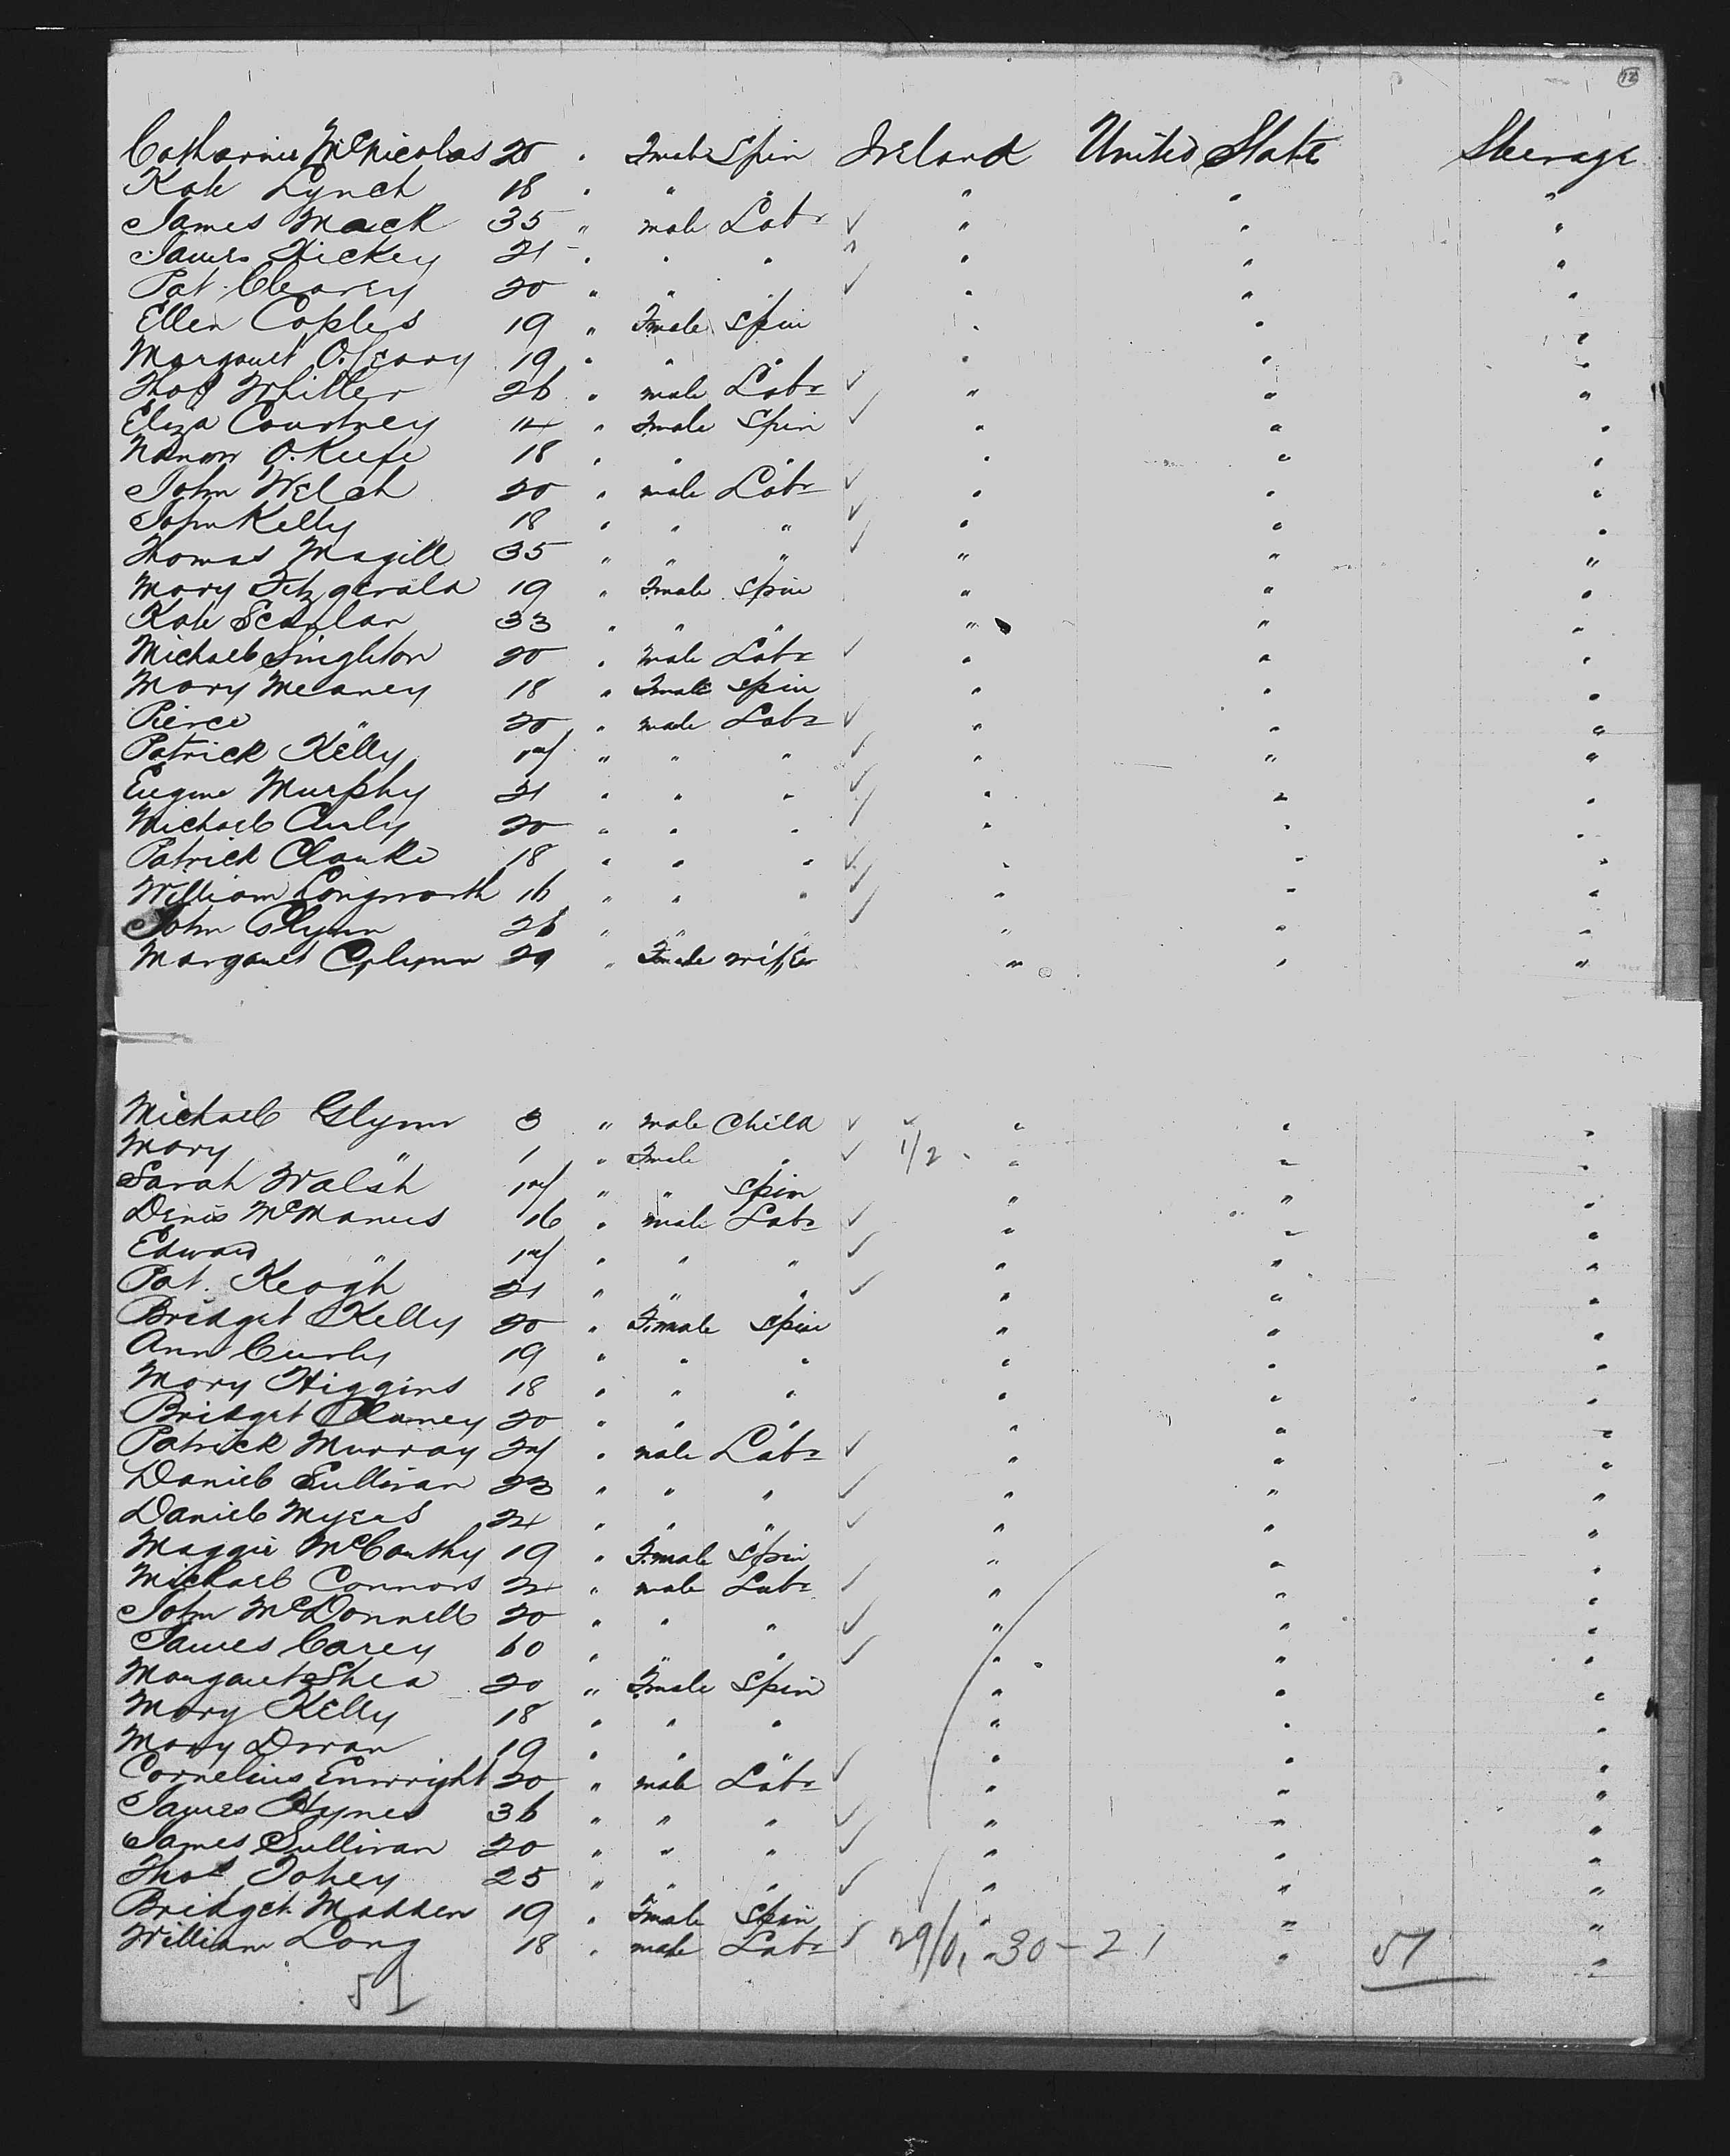 12
Catharine McNicolas 20 " Female Spin Ireland United State Steerage
Kate Lynch 18 " " " " " "
James Mack 35 " male Labr ✓ " " "
James Hickey 21 " " " " " " "
Pat Cleary 20 " " " ✓ " " "
Ellen Coplers 19 " Female Spin " " "
Margaret O.Leary 19 " " " " " "
Thos Whitter 26 " male Labr ✓ " " "
Eliza Courtney 14 " Female Spin ✓ " " "
O.Keefe 18 " " " " " "
John Welch 20 " male Labr ✓ " " "
John Kelly 18 " " " ✓ " " "
Thomas Magill 35 " " " ✓ " " "
Mary Fitzgerald 19 " Female Spin " " "
Kate Scanlan 33 " " " " " "
Michael Singleton 20 " male Labr ✓ " " "
Mary Meaney 18 " Female Spin " " "
Pierce " 20 " male Labr ✓ " " "
Patrick Kelly 17 " " " ✓ " " "
Eugene Murphy 21 " " " ✓ " " "
Michael Curly 20 " " " ✓ " " "
Patrick Clarke 18 " " " ✓ " " "
William Longworth 16 " " " ✓ " " "
John Glynn 26 " " " ✓ " " "
Margaret Glynn 29 " Female wife " " "
Michael Glynn 3 " male Child ✓ ✓ " " "
Mary " 1 " Female " ✓ 1/2 " " "
Sarah Walsh 17 " " Spin " " "
Denis McManus 16 " male Labr ✓ " " "
Edward " 17 " " " ✓ " " "
Pat. Keogh 21 " " " ✓ " " "
Bridget Kelly 20 " Female Spin " " "
Ann Curly 19 " " " " " "
Mary Higgins 18 " " " " " "
Bridget Clancy 20 " " " " " "
Patrick Murray 27 " male Labr ✓ " " "
Daniel Sullivan 23 " " " ✓ " " "
Daniel Myers 24 " " " ✓ " " "
Maggie McCarthy 19 " Female Spin " " "
Michael Connors " male Labr ✓ " " "
John McDonnell 20 " " " ✓ " " "
James Carey 60 " " " ✓ " " "
Margaret Shea 20 " Female Spin " " "
Mary Kelly 18 " " " " " "
Mary Doran 19 " " " " " "
Cornelius Enwright 20 " male Labr ✓ " " "
James Hynes 36 " " " ✓ " " "
James Sullivan 20 " " " ✓ " " "
Thos Tohey 25 " " " ✓ " " "
Bridget Madden 19 " Female Spin " " "
William Long 18 " male Labr ✓ 29/0, 30 - 21 " 51 "
51